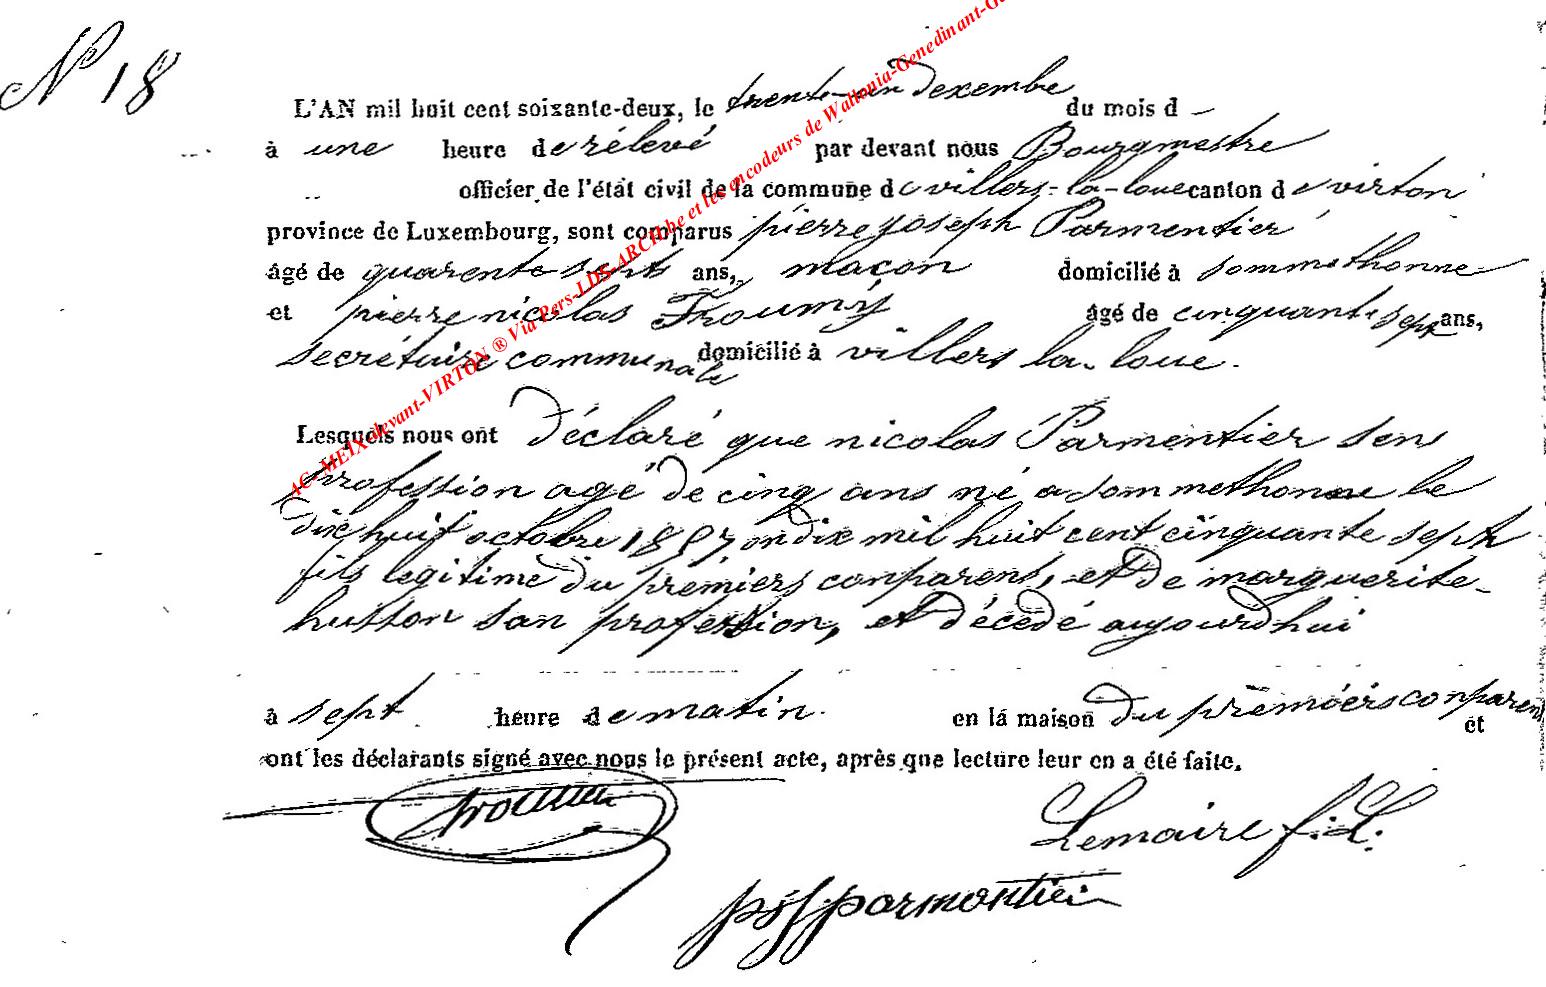 N° 18
L'AN mil huit cent soixante-deux, le trente-un dexembre du mois d -
à une heure de rélevé par devant nous Bourgmestre
officier de l'état civil de la commune de villers-la-loue canton de virton
province de Luxembourg, sont comparus pierre joseph Parmentier
âgé de quarente sept ans, macon domicilié à Sommethonne
et pierre nicolas Troumy âgé de cinquante sept ans,
secrétaire communale domicilié à villers la-loue.
Lesquels nous ont déclaré que nicolas Parmentier sens
profession agé de cinq ans né a sommethonne le
dix huit octobre 1857 ondix mil huit cent cinquante sept
fils legitime du prémiers conparens, et de marguerite
hutton san profession, et décédé aujourdhui
à sept heure de matin. en la maison du prémiers conparens et
ont les déclarants signé avec nous le présent acte, après que lecture leur en a été faite.
Lemaire f. L.
psjparmentier
AC-MEIX-devant-VIRTON ® Via Pers-LDS-ARCH.be et les encodeurs de Wallonia-Genedinant-Ge